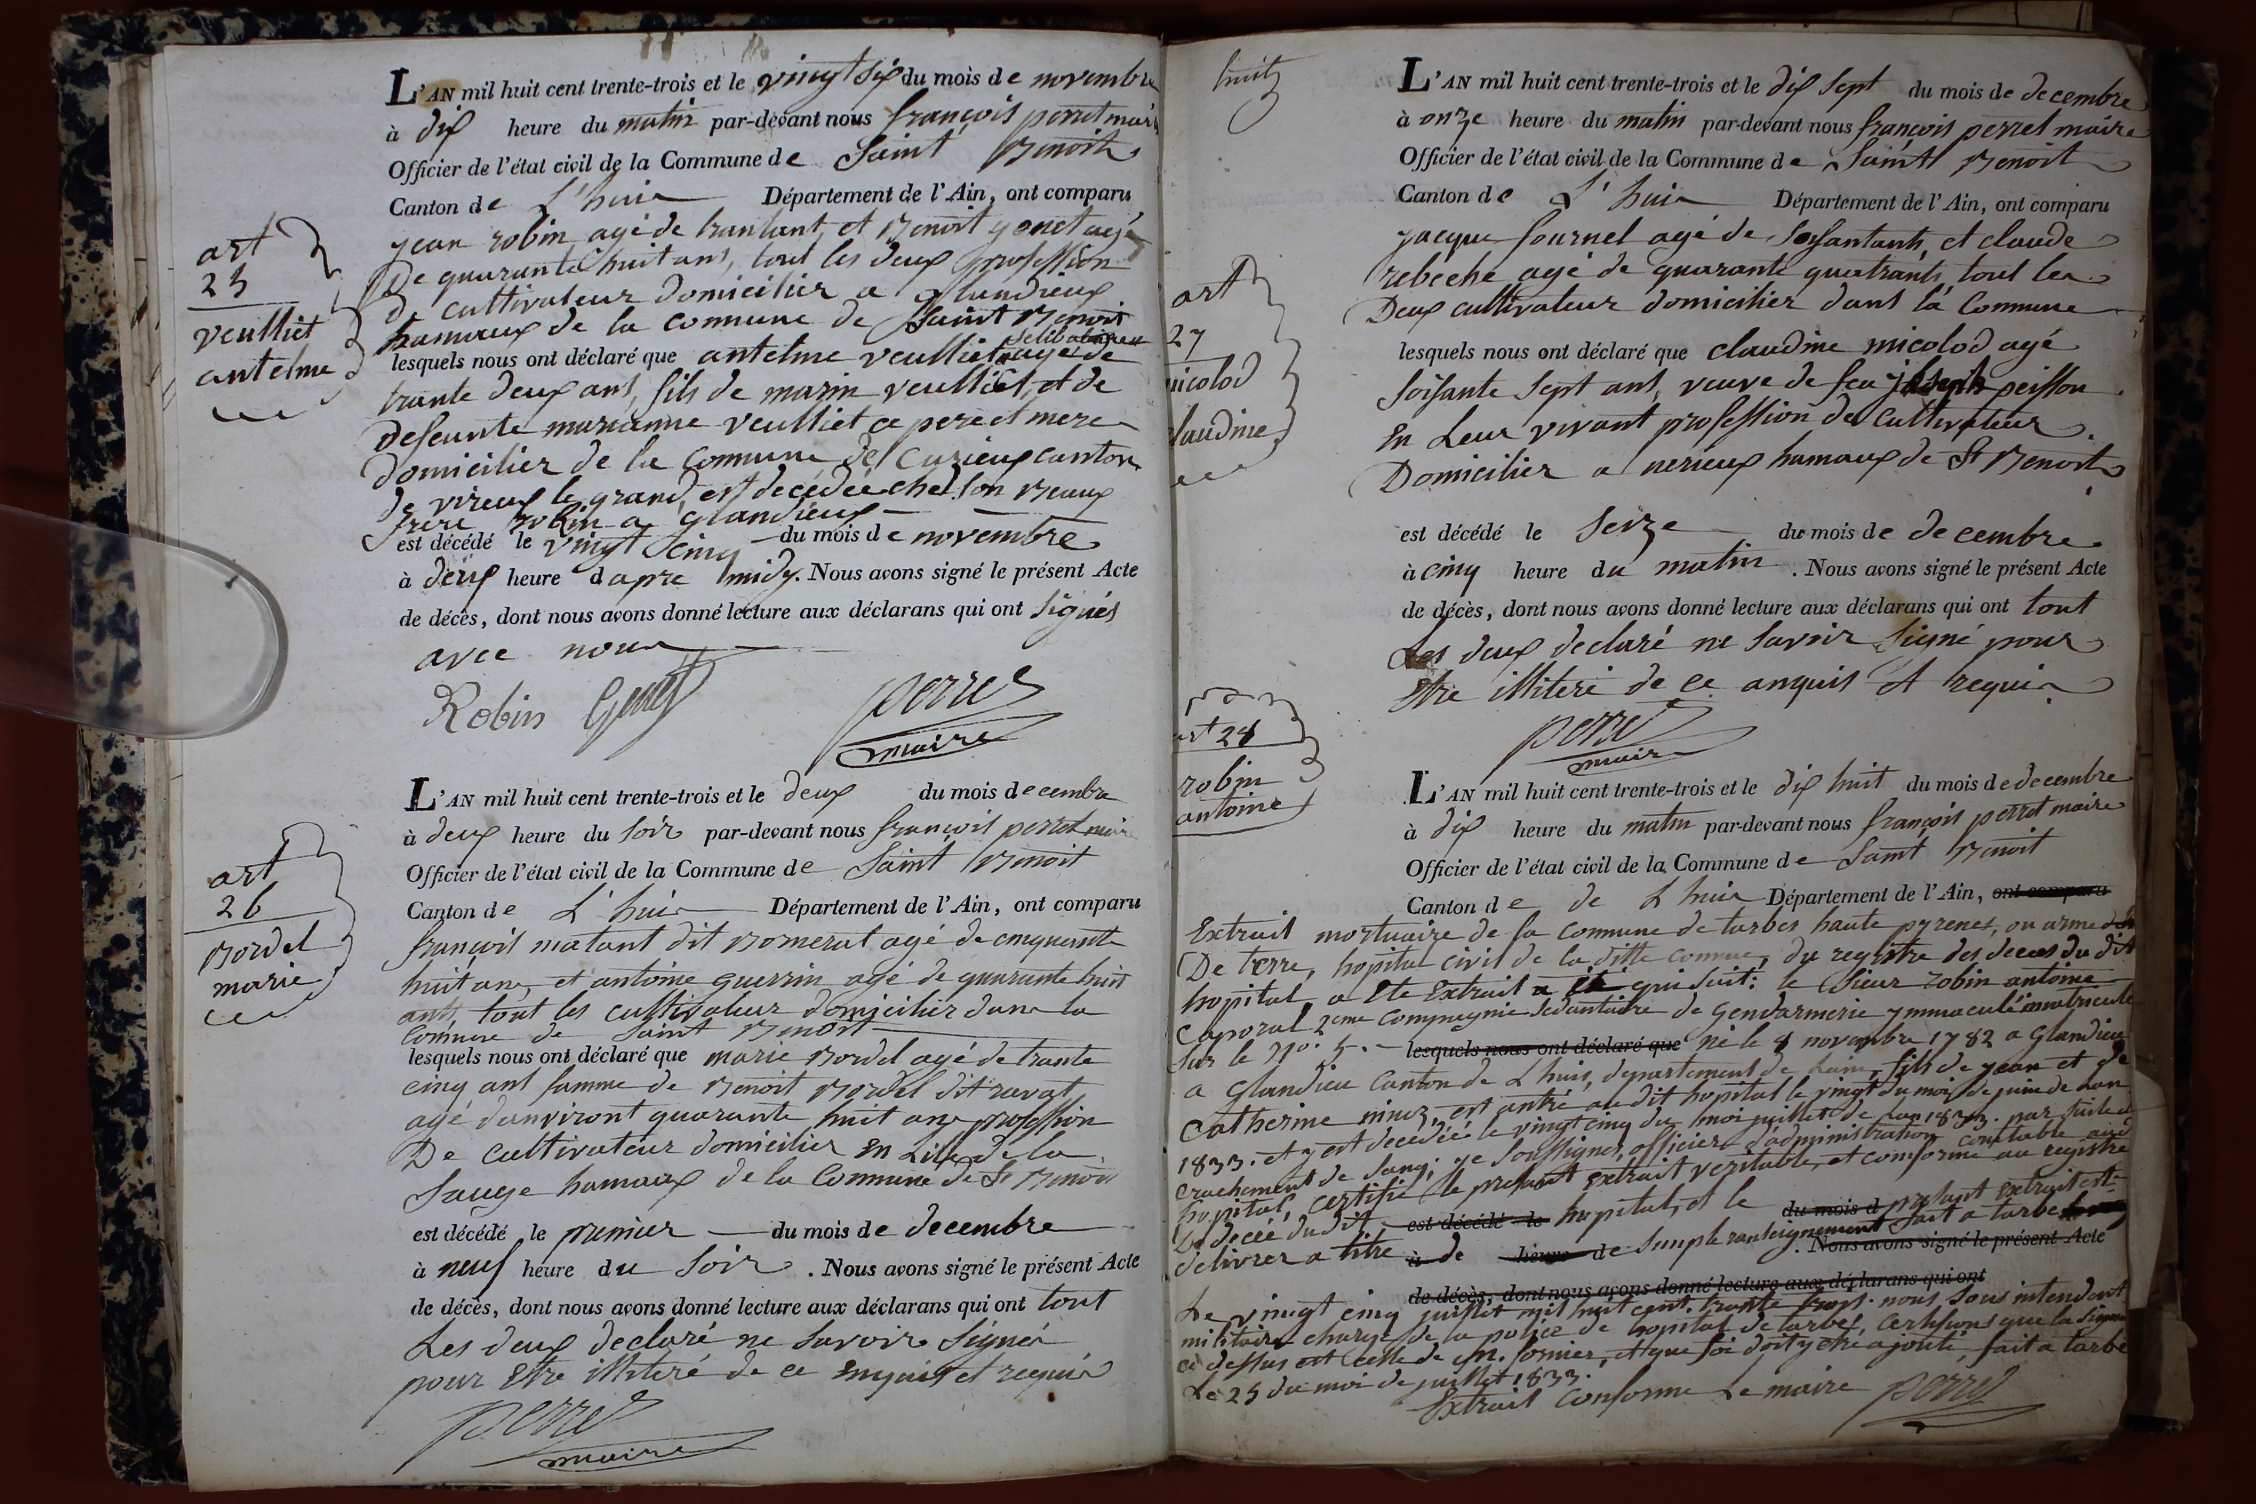 art
25
veulliet
antelme
L'AN mil huit cent trente-trois et le vingt six du mois de novembre
à dix heure du matin par-devant nous françois perret maire
Officier de l'état civil de la Commune de Saint Benoit
Canton de L'huis Département de l'Ain, ont comparu
jean robin agé de trantant, et Benoit genet agé
De quarante huit ans, tout les deux profession
de cultivateur domicilier a glandieux
hamaux de la commune de Saint Benoit
selibataire
lesquels nous ont déclaré que antelme veulliet agé de
trante deux ans, fils de marin veulliet, et de
defeunte marianne veulliet ce pere et mere
domicilier de la Commune de Cuzieux canton
de virieux le grand, est decedée chet son Beaux
frere robin a glandieux
est décédé le vingt cinq du mois de novembre
à deux heure d apre midy. Nous avons signé le présent Acte
de décès, dont nous avons donné lecture aux déclarans qui ont signés
avec nous
Robin Genet perret
maire
art
26
Bordel
marie
L'AN mil huit cent trente-trois et le deux du mois decembre
à deux heure du soir par-devant nous françois perret maire
Officier de l'état civil de la Commune de Saint Benoit
Canton de L'huis Département de l'Ain, ont comparu
françois matant dit Bomerat agé de cinquente
huit ans, et antoine guerrin agé de quarante huit
ans, tout les cultivateur domicilier dans la
Commune de Saint Benoit
lesquels nous ont déclaré que marie Bordel agé de trante
cinq ans famme de Benoit Bordel dit ravat
agé d'anviront quarante huit ans profession
De cultivateur domicilier en Lile de la
Sauge hamaux de la Commune de St Benoit
est décédé le premier du mois de decembre
à neuf heure du soir. Nous avons signé le présent Acte
de décès, dont nous avons donné lecture aux déclarans qui ont tout
Les deux declaré ne savoir signér
pour Etre illiteré de ce enquis et requis
perret
maire
huit
art
27
micolod
claudine
L'AN mil huit cent trente-trois et le dix sept du mois de decembre
à onze heure du matin par-devant nous françois perret maire
Officier de l'état civil de la Commune de Saint Benoit
Canton de L'huis Département de l'Ain, ont comparu
jacque fournel agé de soisantants, et claude
rebeche agé de quarante quatrants, tout les
Deux cultivateur domicilier dans la Commune
lesquels nous ont déclaré que claudine micolod agé
soisante sept ans, veuve de feu joseph peisson
En Leur vivant profession de Cultivateur
Domicilier a nerieux hamaux de St Benoit
est décédé le seize du mois de decembre
à cinq heure du matin. Nous avons signé le présent Acte
de décès, dont nous avons donné lecture aux déclarans qui ont tout
Les deux declaré ne savoir signé pour
Etre illiteré de ce anquis Et requis
perret
maire
art 28
robin
antoine
L'AN mil huit cent trente-trois et le dix huit du mois de decembre
à dix heure du matin par-devant nous françois perret maire
Officier de l'état civil de la Commune de Saint Benoit
Canton de de L huis Département de l'Ain, ont comparu
Extrait mortuaire de la commune de tarbes haute pyrenes, ou arme
De terre, hopital civil de la ditte commune, du registre des deces du dit
hopital, a Ete Extrait a été qui suit: le Sieur robin antoine
Caporal 2eme Compagnie sedantaire de gendarmerie ymmaculé imatricule
sur le No. 5. lesquels nous ont déclaré que né le 8 novembre 1782 a Glandieu
a glandieu Canton de L'huis, departement de Lain, fils de jean et de
Catherine ninez, est antré au dit hopital le vingt du mois de juin de Lan
1833. et y est decedéé le vingt cinq du moi juillet de Lan 1833. par suite d
crachement de sang; je soussigner, officier d'administration comtable aud
hopital, certifie le presant extrait veritable, et conforme au registre
De décéé du dit est décédé le hopital, et le du mois d presant extrait est
delivrer a titre à de heure de simple ranseignement Nous avons signé le présent Acte fait a tarbe
de décès, dont nous avons donné lecture aux déclarans qui ont
Le vingt cinq juillet mil huit cent trante trois. nous sous intendant
militaire chargé de la police de hopital de tarbes, certifions que la signature
ci dessus est celle de M. fornier, et que foi doit y etre ajouté, fait a tarbe
Le 25 du moi de juillet 1833.
Extrait Conforme Le maire perret